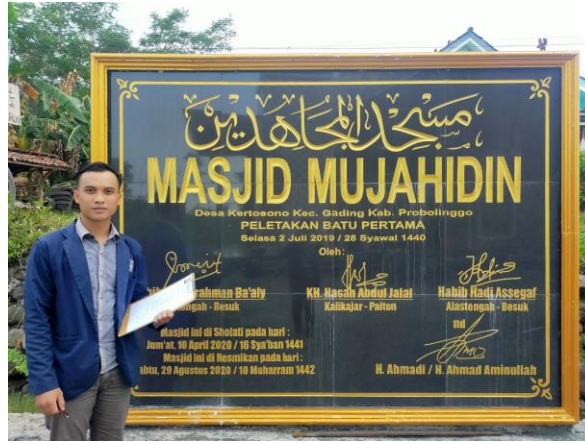 مسجد المجاهدين
MASJID MUJAHIDIN
Desa Kertosono Kec. Gading Kab. Probolinggo
PELETAKAN BATU PERTAMA
Selasa 2 Juli 2019 / 28 Syawal 1440
Oleh :
rahman Ba'aly KH. Hasan Abdul Jalal Habib Hadi Assegaf
engah - Besuk Kalikajar - Paiton Alastengah - Besuk
Masjid ini di Sholati pada hari :
Jum'at, 10 April 2020 / 16 Sya'ban 1441
Masjid ini di Resmikan pada hari :
abtu, 29 Agustus 2020 / 10 Muharram 1442
ttd
H. Ahmadi / H. Ahmad Aminullah